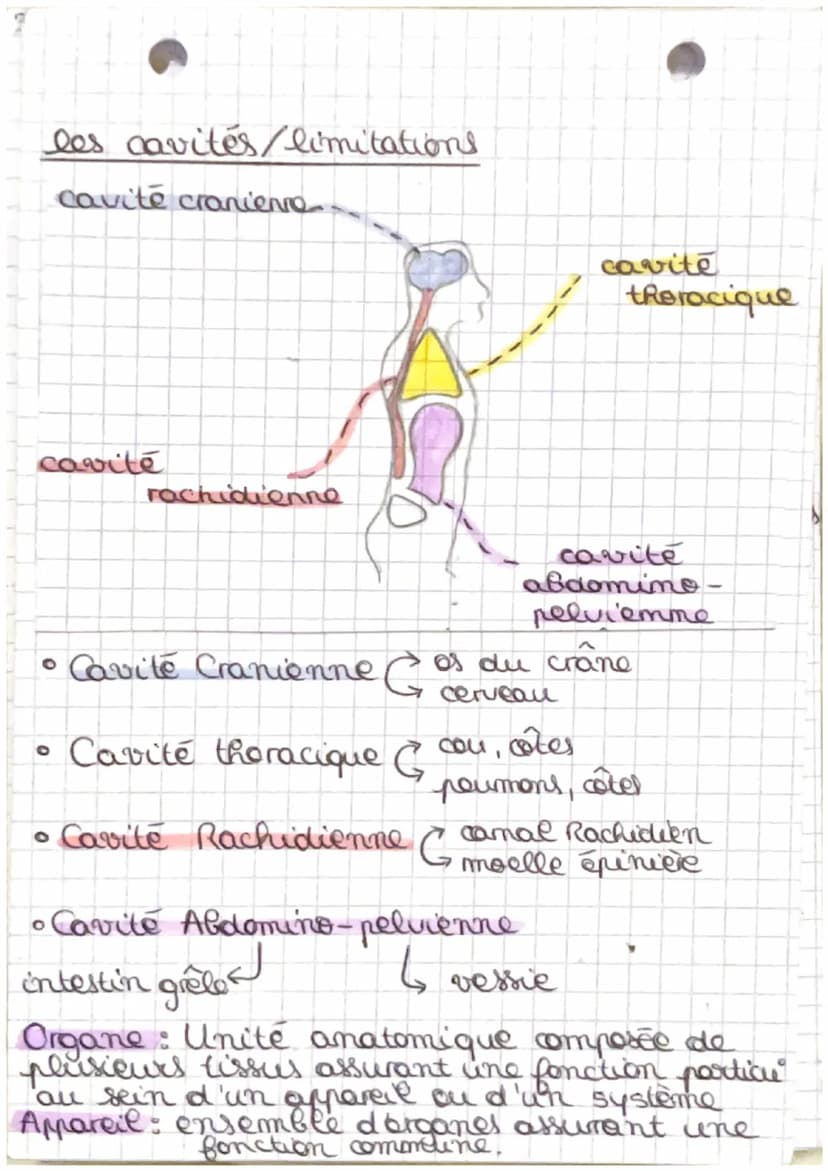 les cavités/limitations
cavité cranienne
cavité
thoracique
cavité
rachidienne
cavité
abdomino-
pelvienne
• Cavité Cranienne → os du crâne
→ cerveau
• Cavité thoracique → cou, côtes
→ poumons, côtes
• Cavité Rachidienne → canal Rachidien
→ moelle épinière
• Cavité Abdomino-pelvienne
intestin grêle ↵ ↳ vessie
Organe : Unité anatomique composée de
plusieurs tissus assurant une fonction particu
au sein d'un appareil ou d'un système
Appareil : ensemble d'organes assurant une
fonction commune.